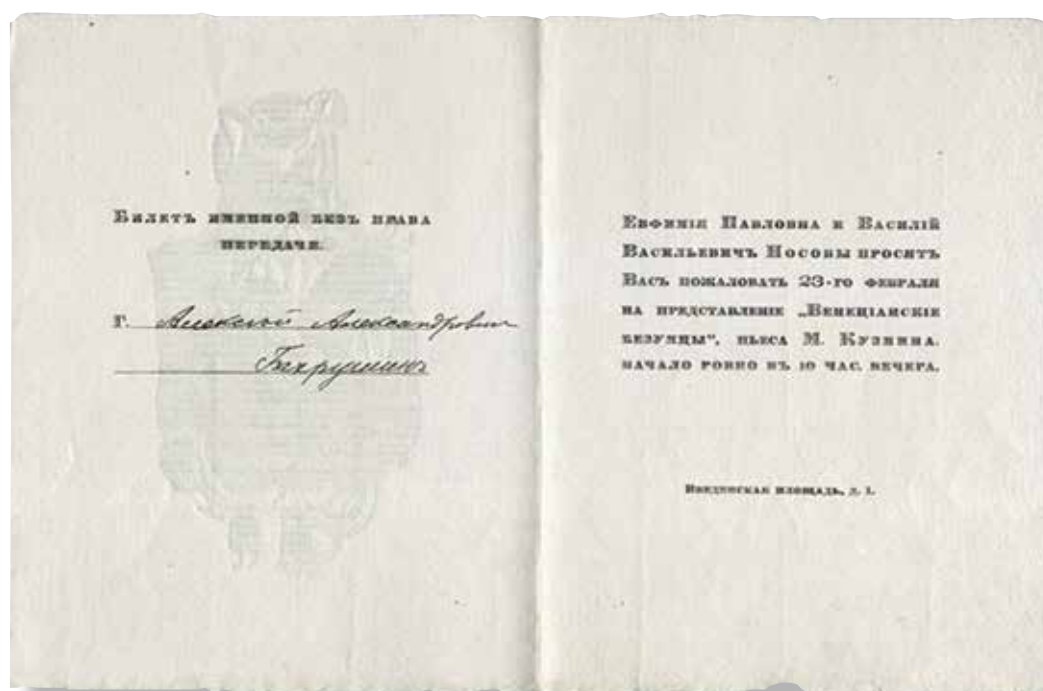 Билетъ именной безъ права
передачи.
Г. Алексѣй Александровичъ
Бахрушинъ
Евфимія Павловна и Василій
Васильевичъ Носовы просятъ
Васъ пожаловать 23-го февраля
на представленіе „Венеціанскіе
безумцы“, пьеса М. Кузмина.
Начало ровно въ 10 час. вечера.
Введенская площадь, д. 1.